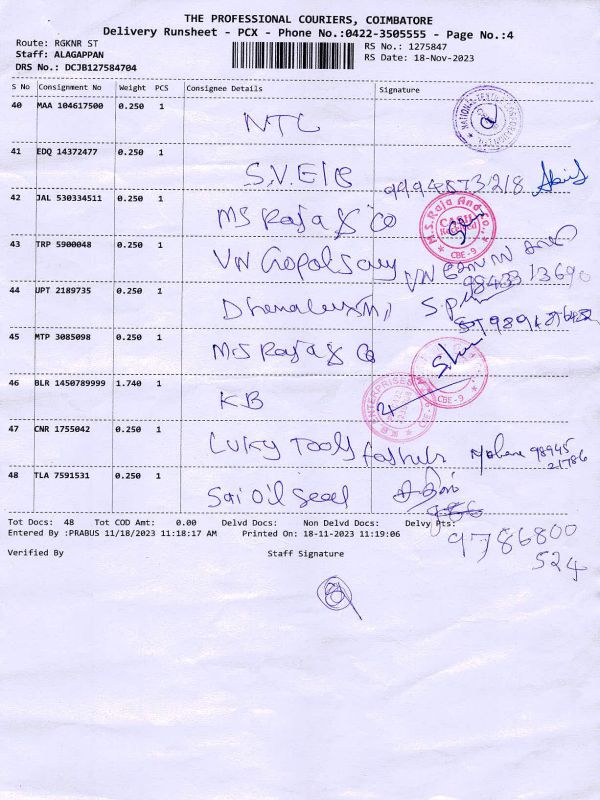 THE PROFESSIONAL COURIERS, COIMBATORE
Delivery Runsheet - PCX - Phone No.:0422-3505555 - Page No.:4
Route: RGKNR ST
Staff: ALAGAPPAN
DRS No.: DCJB127584704
RS No.: 1275847
RS Date: 18-Nov-2023
S No Consignment No Weight PCS Consignee Details Signature
40 MAA 104617500 0.250 1 NTC
41 EDQ 14372477 0.250 1 S.V.Ele
42 JAL 530334511 0.250 1 MS Raja & Co
M.S. Raja And Co., CASH CBE-9
43 TRP 5900048 0.250 1 VN Gopalsamy VN
44 UPT 2189735 0.250 1 Dhanalaxmi
45 MTP 3085098 0.250 1 M.S Raja & Co
CBE-9
46 BLR 1450789999 1.740 1 KB
ENTERPRISES
47 CNR 1755042 0.250 1 Luky Tools 98945
21786
48 TLA 7591531 0.250 1 Sai Oil Seal
Tot Docs: 48 Tot COD Amt: 0.00 Delvd Docs: Non Delvd Docs: Delvy Pts:
Entered By :PRABUS 11/18/2023 11:18:17 AM Printed On: 18-11-2023 11:19:06
9786800
524
Verified By Staff Signature